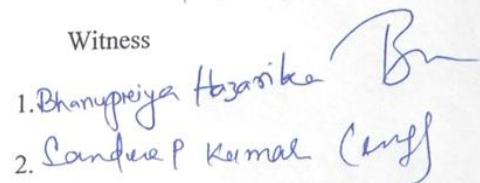 Witness
1. Bhanupreiya Hazarika
2. Sandeep Kumar